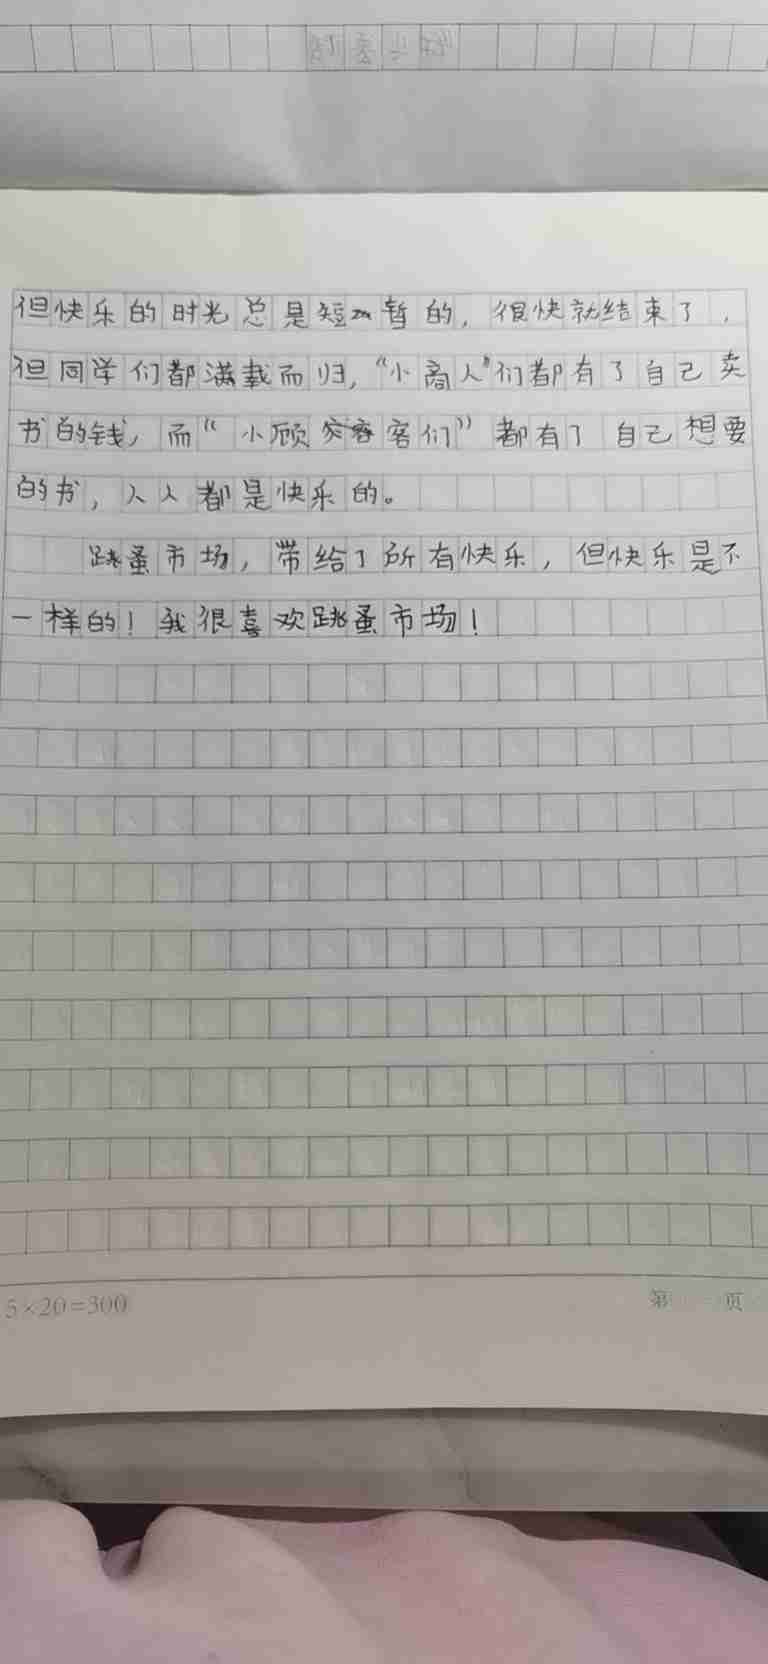 但快乐的时光总是短暂的，很快就结束了，
但同学们都满载而归，“小商人”们都有了自己卖
书的钱，而“小顾客们”都有了自己想要
的书，人人都是快乐的。
跳蚤市场，带给了所有快乐，但快乐是不
一样的！我很喜欢跳蚤市场！
5×20=300
第 页